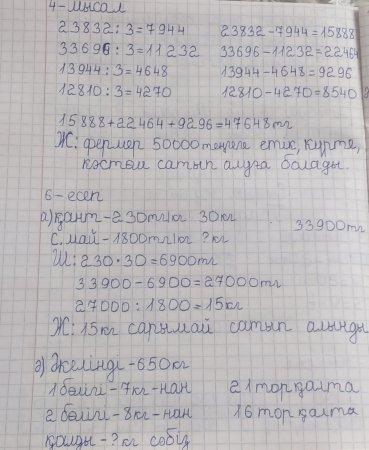 4-мысал
23832:3=7944 23832-7944=15888
33696:3=11232 33696-11232=22464
13944:3=4648 13944-4648=9296
12810:3=4270 12810-4270=8540
15888+22464+9296=47648тг
Ж: фермер 50000 теңгеге етік, күрте,
костюм сатып алуға болады.
6-есеп
а) қант-230тг/кг 30кг
33900тг
С.май-1800тг/кг ?кг
Ш: 230·30=6900тг
33900-6900=27000тг
27000:1800=15кг
Ж: 15кг сарымай сатып алынды
ә) Әкелінді-650кг
1бөлігі-7кг-нан 21торқалта
2бөлігі-8кг-нан 16торқалта
қалды-?кг сәбіз